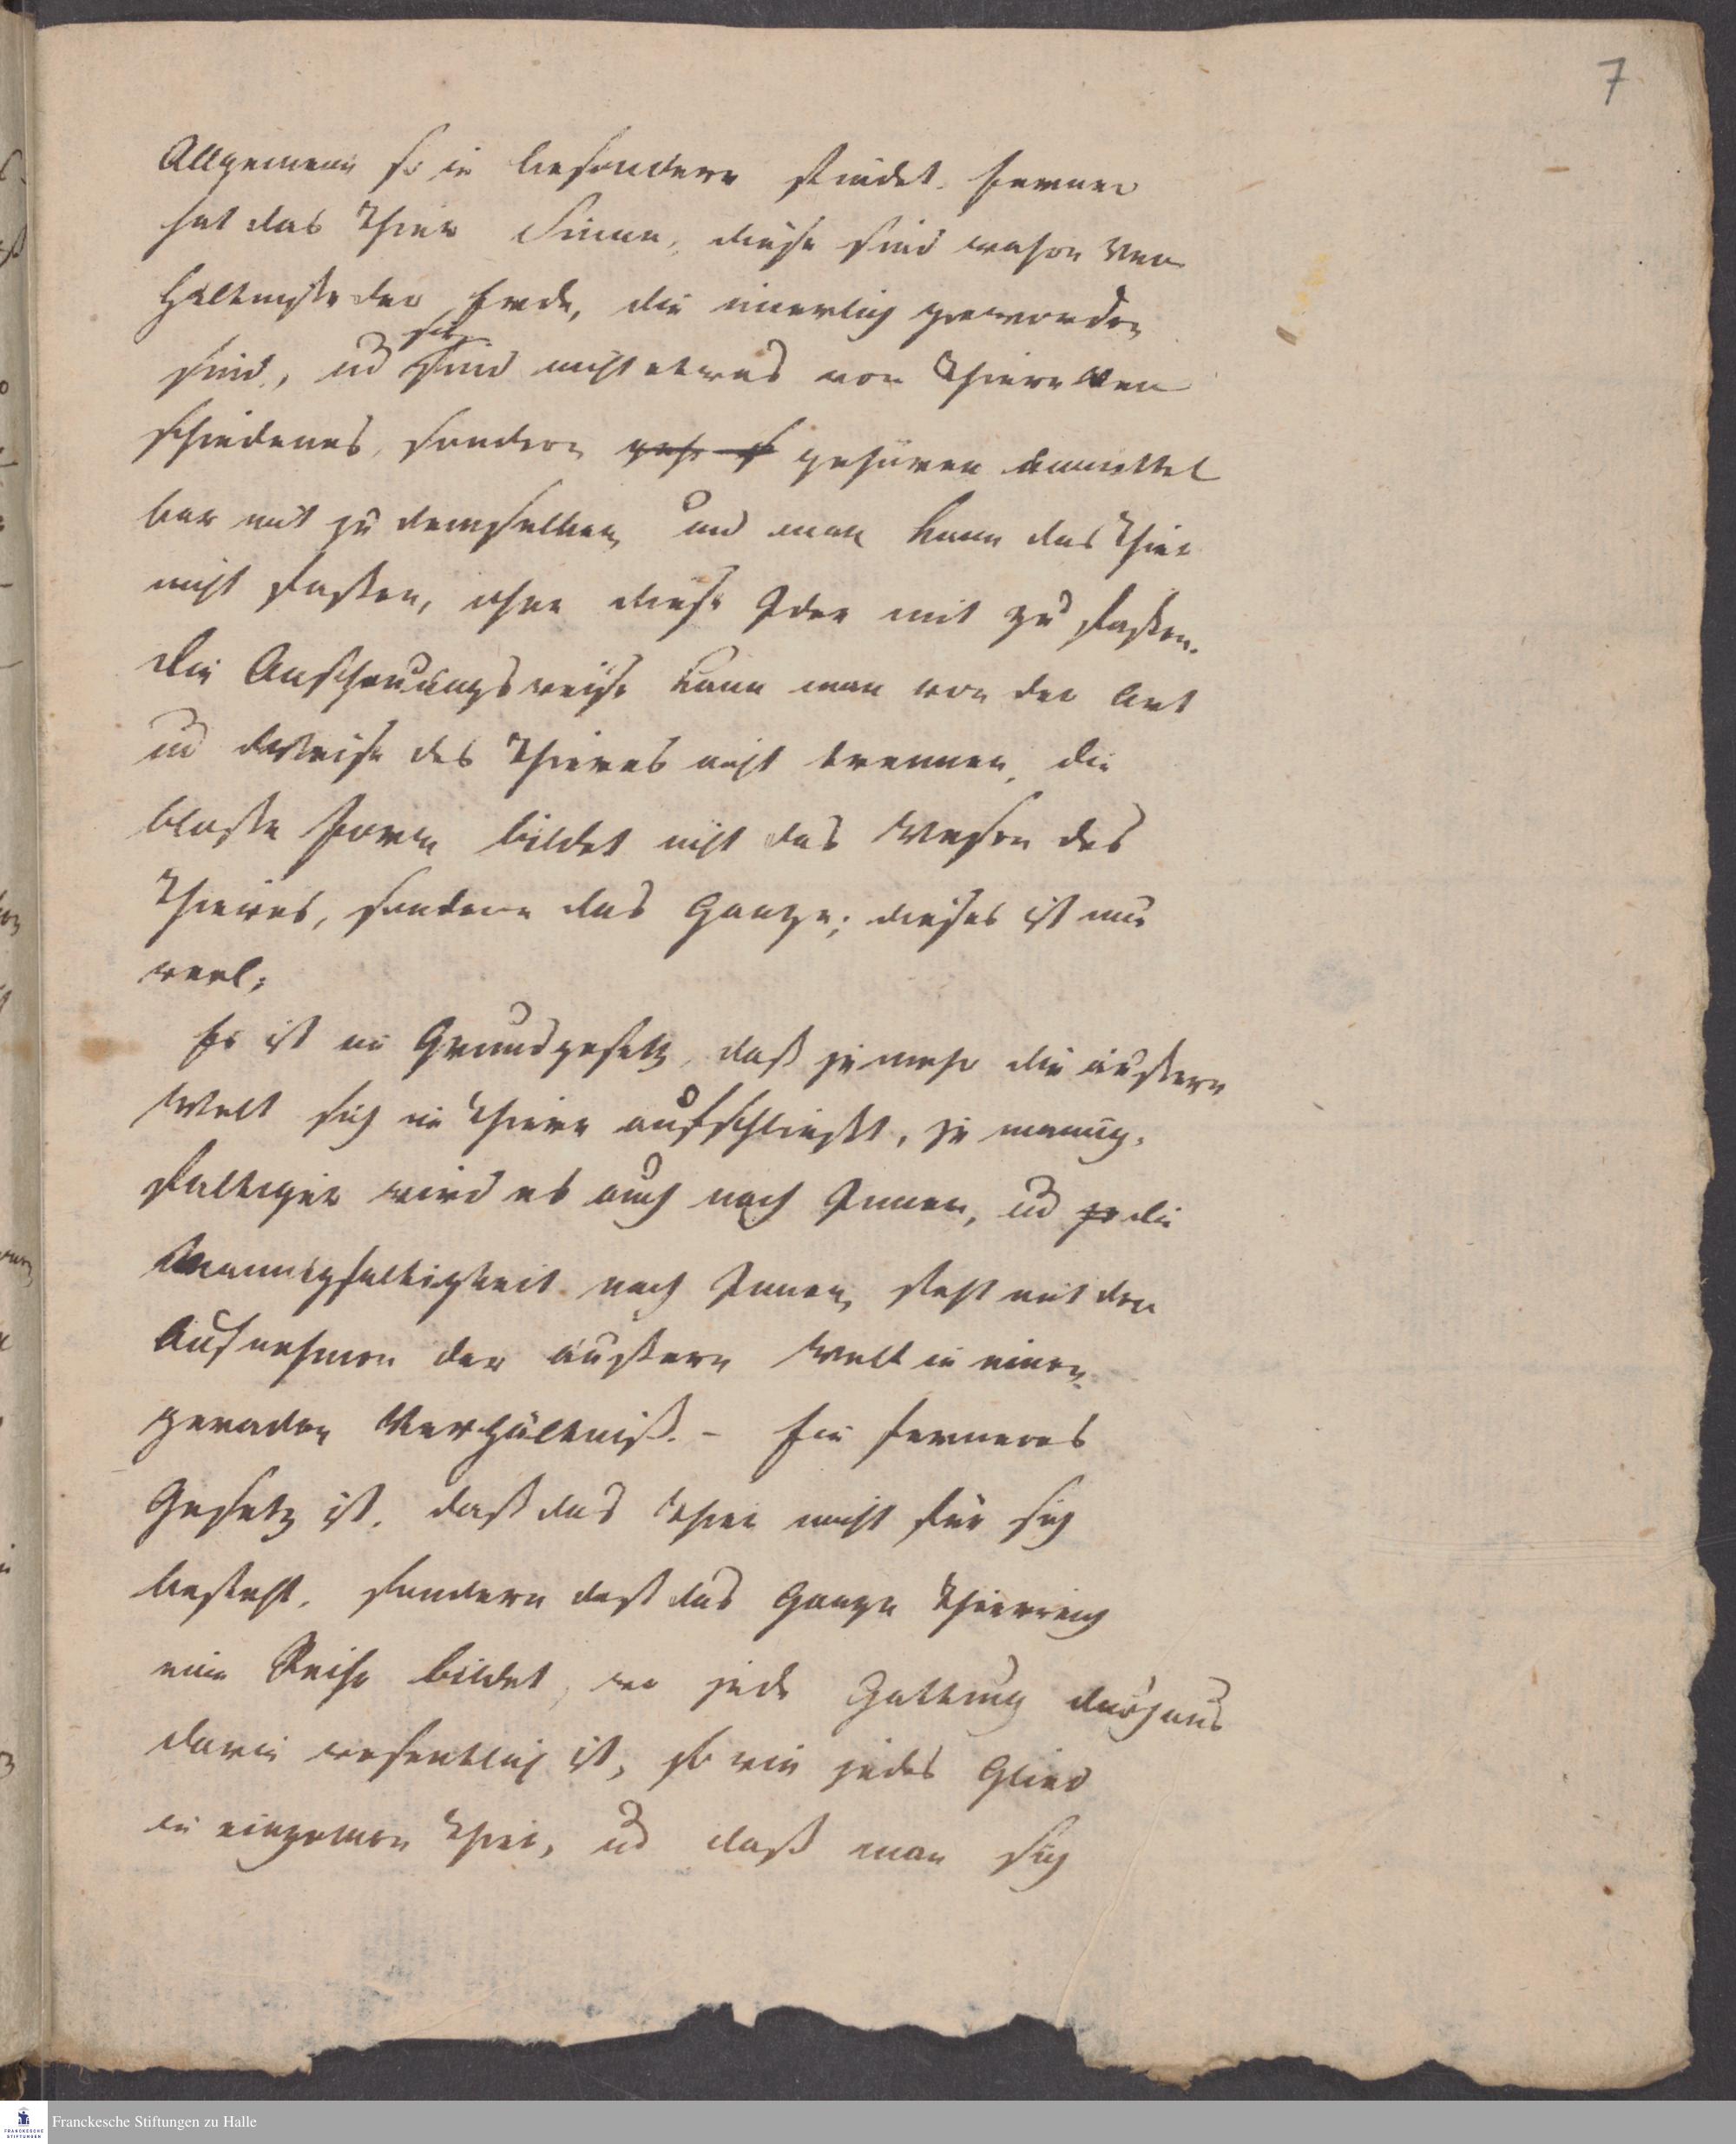 7
Allgemeine so in besondern findet. Ferner
hat das Thier Sinne, diese sind wahre Ver
hältnisse der Erde, die innerlich geworden
sind, ud sie sind nicht etwas von Thiere ver
schiedenes, sondern gehören unmittel
bar mit zu demselben, und man kann das Thier
nicht fassen, ohne diese Idee mit zu fassen.
Die Anschauungsweise kann man von der Art
ud Weise des Thieres nicht trennen, die
blosse Form bildet nicht das Wesen des
Thieres, sondern das Ganze; dieses ist nur
reel;
Es ist ein Grundgesetz, daß je mehr die äussere
Welt sich in Thiere aufschliesst, je mannig-
faltiger wird es auch nach Innen, ud je die
Mannigfaltigkeit nach Innen, steht mit dem
Aufnehmen der äussern Welt in einem
geraden Verhältniß. - Ein ferneres
Gesetz ist, daß das Thier nicht für sich
besteht, sondern daß das Ganze Thierreich
eine Reihe bildet, wo jede Gattung durchaus
darin wesentlich ist, so wie jedes Glied
in einzelnen Thier, ud daß man sich
Franckesche Stiftungen zu Halle